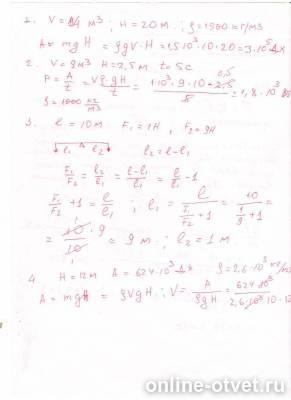 1. V = 1 м³ ; H = 20 м ; ρ = 1500 кг/м³
A = mgH = ρgV·H = 1,5·10³·10·20 = 3·10⁵ Дж
2. V = 9 м³ H = 2,5 м t = 5 c
P = A/t = VρgH/t = 1·10³·9·10·2,5/5 = 1,8·10
0,5
ρ = 1000 кг/м³
3. l = 10 м F₁ = 1H , F₂ = 9H
l₁ l₂ l₂ = l - l₁
F₁/F₂ = l₂/l₁ = l-l₁/l₁ = l/l₁ - 1
F₁/F₂ + 1 = l/l₁ ; l₁ = l/(F₁/F₂ + 1) = 10/(1/9 + 1)
= 10·9/10 = 9 м ; l₂ = 1 м
4 H = 12 м A = 624·10³ Дж ρ = 2,6·10³ кг/м³
A = mgH = ρVgH ; V = A/ρgH = 624·10³/2,6·10³·10·12
online-otvet.ru